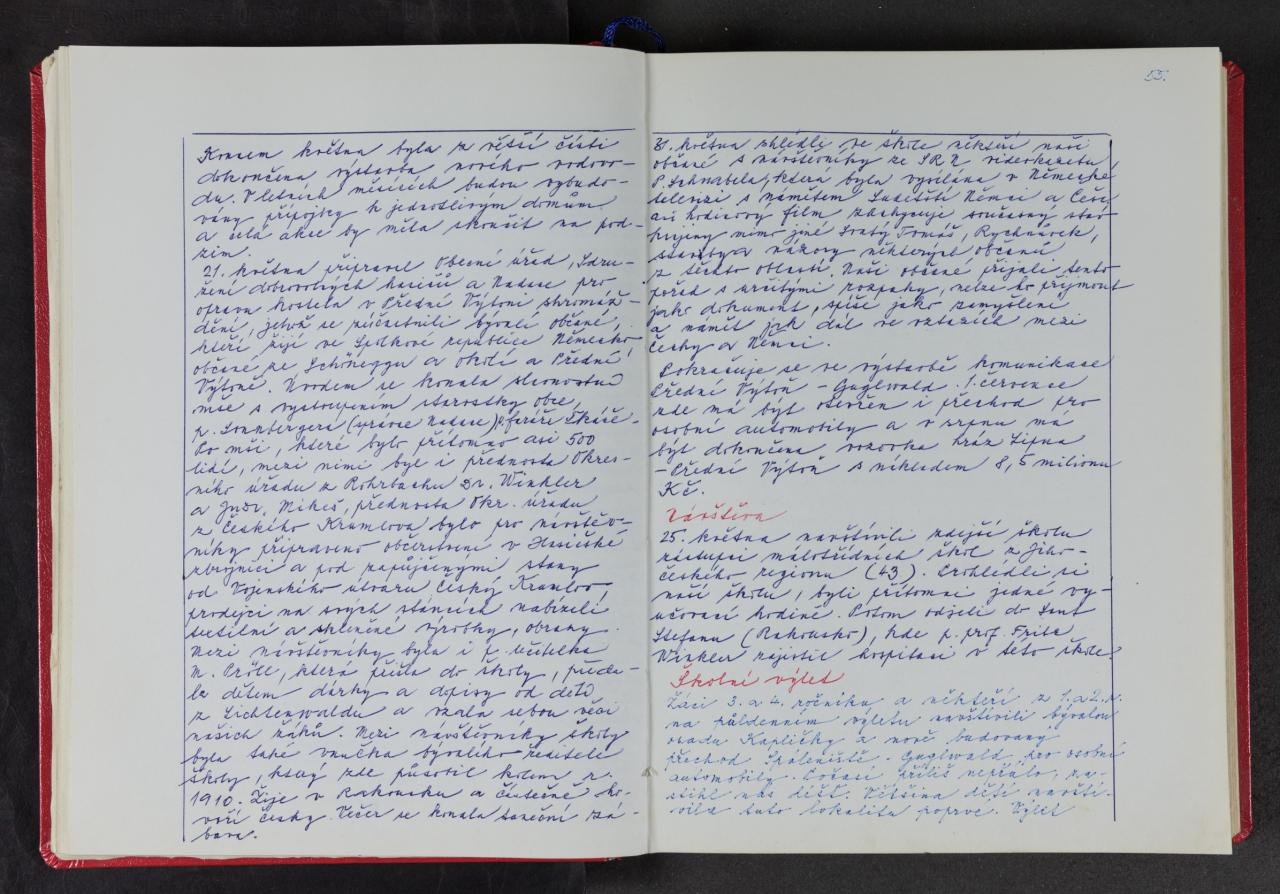 Koncem května byla z větší části
dokončena výstavba nového vodovo-
du. V letních měsících budou vybudo-
vány přípojky k jednotlivým domům
a celá akce by měla skončit na pod-
zim.
21. května připravil Obecní úřad, Sdru-
žení dobrovolných hasičů a Nadace pro
opravu kostela v Přední Výtoni shromáž-
dění, jehož se zúčastnili bývalí občané,
kteří žijí ve Spolkové republice Německo,
občané ze Schöneggu a okolí a Přední
Výtoně. Úvodem se konala slavnostní
mše s vystoupením starostky obce,
p. Sonnbergera (správce nadace) p. faráře
Po mši, které bylo přítomno asi 500
lidí, mezi nimi byl i přednosta Okres-
ního úřadu z Rohrbachu Dr. Winkler
a JUDr. Mikeš, přednosta Okr. úřadu
z Českého Krumlova bylo pro návštěv-
níky připraveno občerstvení v Hasičské
zbrojnici a pod zapůjčenými stany
od Vojenského útvaru Český Krumlov,
prodejci na svých stáncích nabízeli
textilní a skleněné výrobky, obrazy.
Mezi návštěvníky byla i p. učitelka
M. Pröll, která přišla do školy, předa-
la dětem dárky a dopisy od dětí
z Lichtenwaldu a vzala sebou věci
našich žáků. Mezi návštěvníky školy
byla také vnučka bývalého ředitele
školy, který zde působil kolem r.
1910. Žije v Rakousku a částečně ho-
voří česky. Večer se konala taneční zá-
bava.
55.
31. května shlédli ve škole někteří naši
občané s návštěvníky ze SRN videokazetu
P. Schnabela, která byla vysílána v Německé
televizi s námětem Sudetští Němci a Češi,
asi hodinový film zachycuje současný stav
krajiny mimo jiné Svatý Tomáš, Rychnůvek,
stavby a názory některých občanů
z těchto oblastí. Naši občané přijali tento
pořad s určitými rozpaky, nelze ho přijmout
jako dokument, spíše jako zamyšlení
a námět jak dál ve vztazích mezi
Čechy a Němci.
Pokračuje se ve výstavbě komunikace
Přední Výtoň - Guglwald. 1. července
zde má být otevřen i přechod pro
osobní automobily a v srpnu má
být dokončena vozovka hráz Lipna
- Přední Výtoň s nákladem 8,5 milionu
Kč.
Návštěva
25. května navštívili zdejší školu
zástupci málotřídních škol z Jiho-
českého regionu (43). Prohlédli si
naši školu, byli přítomni jedné vy-
učovací hodině. Potom odjeli do Sant
Stefanu (Rakousko), kde p. prof. Fritz
Winkler zajistil hospitaci v této škole.
Školní výlet
Žáci 3. a 4. ročníku a někteří z 1. a 2. r.
na půldenním výletu navštívili bývalou
osadu Kapličky a nově budovaný
přechod Spáleniště - Guglwald, pro osobní
automobily. Počasí příliš nepřálo, za-
stihl nás déšť. Většina dětí navští-
vila tuto lokalitu poprvé. Výlet